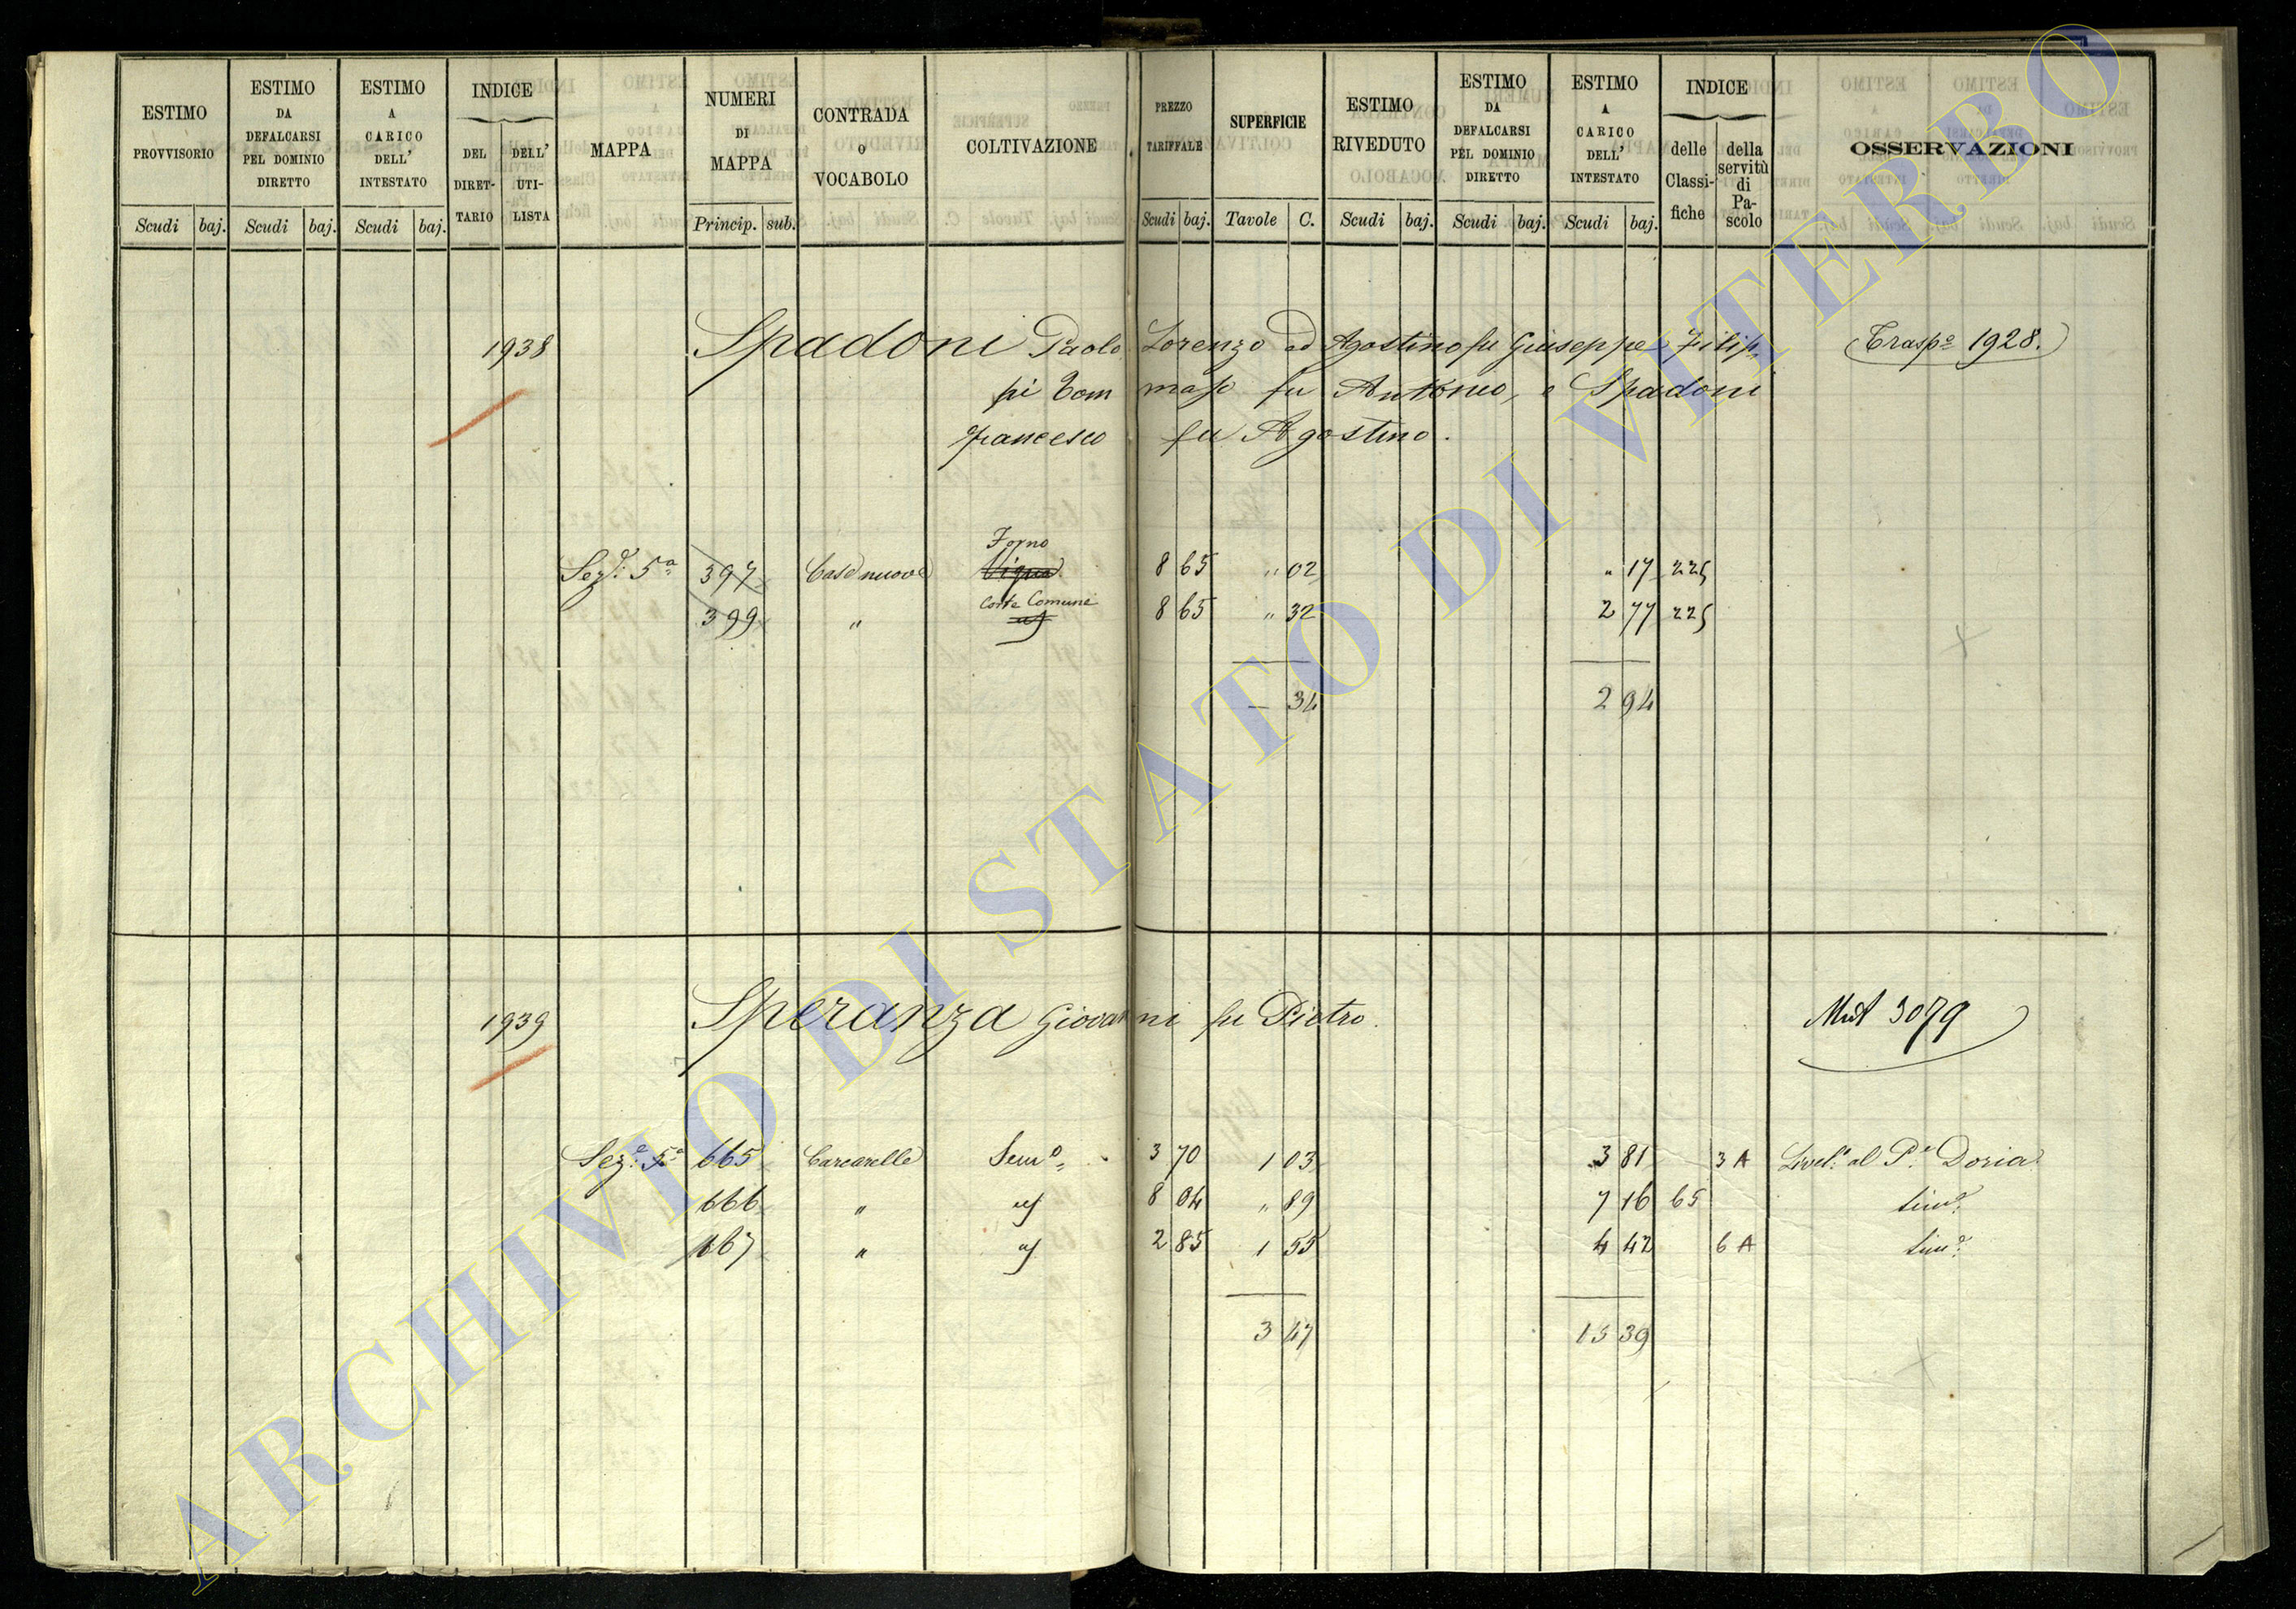 ESTIMO PROVVISORIO
Scudi baj.
ESTIMO DA DEFALCARSI PEL DOMINIO DIRETTO
Scudi baj.
ESTIMO A CARICO DELL' INTESTATO
Scudi baj.
INDICE
DEL DIRET-TARIO
DELL' UTI-LISTA
MAPPA
NUMERI DI MAPPA
Princip. sub.
CONTRADA O VOCABOLO
COLTIVAZIONE
PREZZO TARIFFALE
Scudi baj.
SUPERFICIE
Tavole C.
ESTIMO RIVEDUTO
Scudi baj.
ESTIMO DA DEFALCARSI PEL DOMINIO DIRETTO
Scudi baj.
ESTIMO A CARICO DELL' INTESTATO
Scudi baj.
INDICE
delle Classi-fiche
della servitù di Pa-scolo
OSSERVAZIONI
1938 Spadoni Paolo Lorenzo ed Agostino fu Giuseppe, Filip- Trasp.o 1928.
pi Tommaso fu Antonio, e Spadoni
Francesco fu Agostino.
Forno
Sez.e 5a 397 Case nuove Vigna 8 65 " 02 " 17 225
Corte Comune
399 " 8 65 " 32 2 77 225
— 34 2 94
1939 Speranza Giovanni fu Pietro. Mut 3079
Sez.e 5a 665 Carcarelle Sem.o 3 70 1 03 3 81 3 A Livel.o al P.e Doria
666 " id 8 04 " 89 7 16 65 sim.e
667 " id 2 85 1 55 4 42 6 A sim.e
3 47 15 39
ARCHIVIO DI STATO DI VITERBO